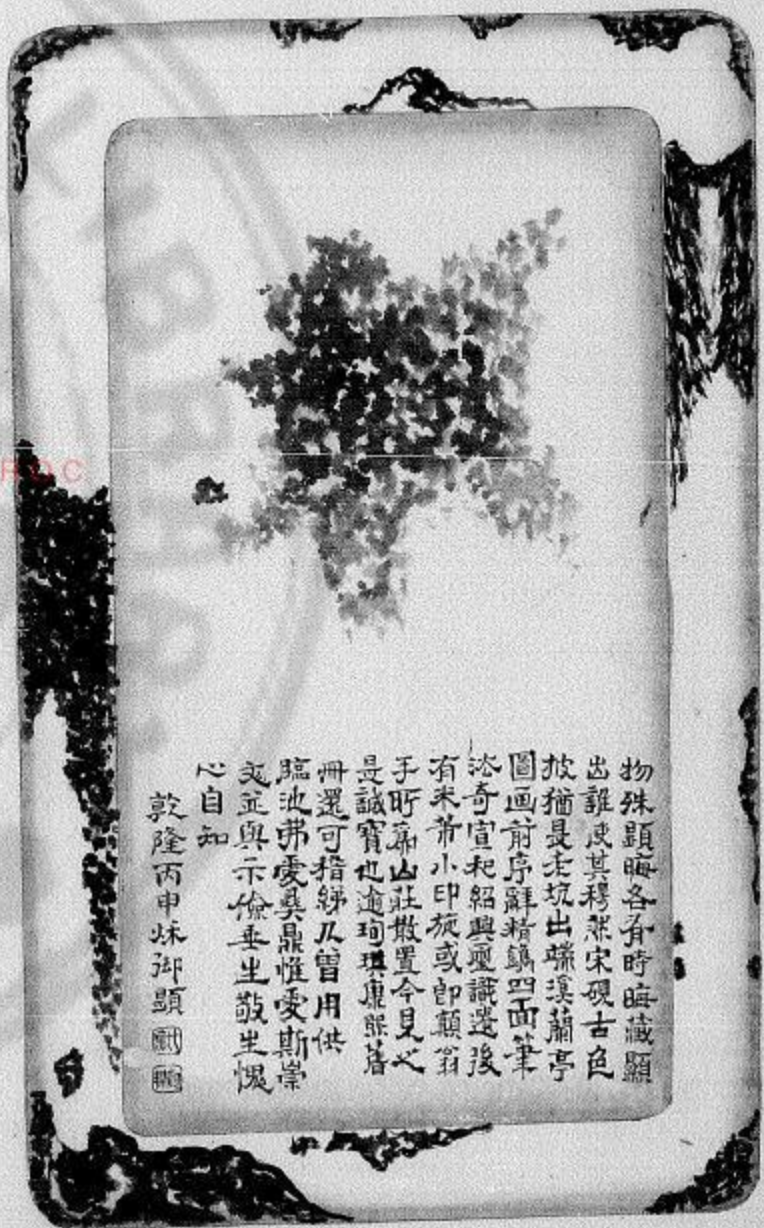 物殊顯晦各有時晦藏顯
出誰使其穆然宋硯古色
披猶是老坑出端溪蘭亭
圖画前序辭精鐫四面筆
法奇宣和紹興璽識邊後
有米芾小印旋或即顛翁
手所爲山莊散置今見之
是誠寶也逾珣琪康熙舊
冊還可指綈几曾用供
臨池弗愛彝鼎惟愛斯崇
文並與示儉垂生敬生愧
心自知
乾隆丙申秋御題
LIBRARY
ROC